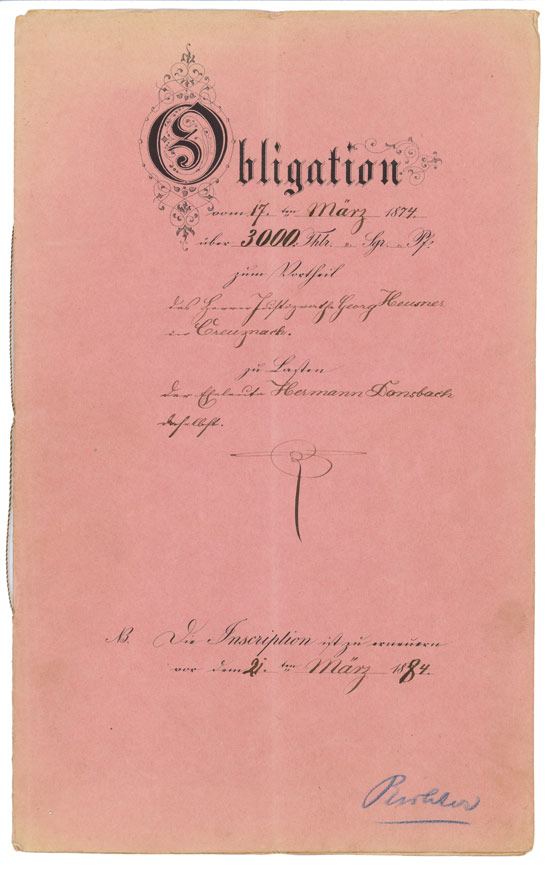 Obligation
vom 17. ten März 1874.
über 3000. Thlr. " Sgr. " Pf:
zum Vortheil
des Herrn Justizrath Georg Heusner
in Creuznach.
zu Lasten
der Eheleute Hermann
daselbst.
NB. Die Inscription ist zu erneuern
vor dem 21. ten März 1884.